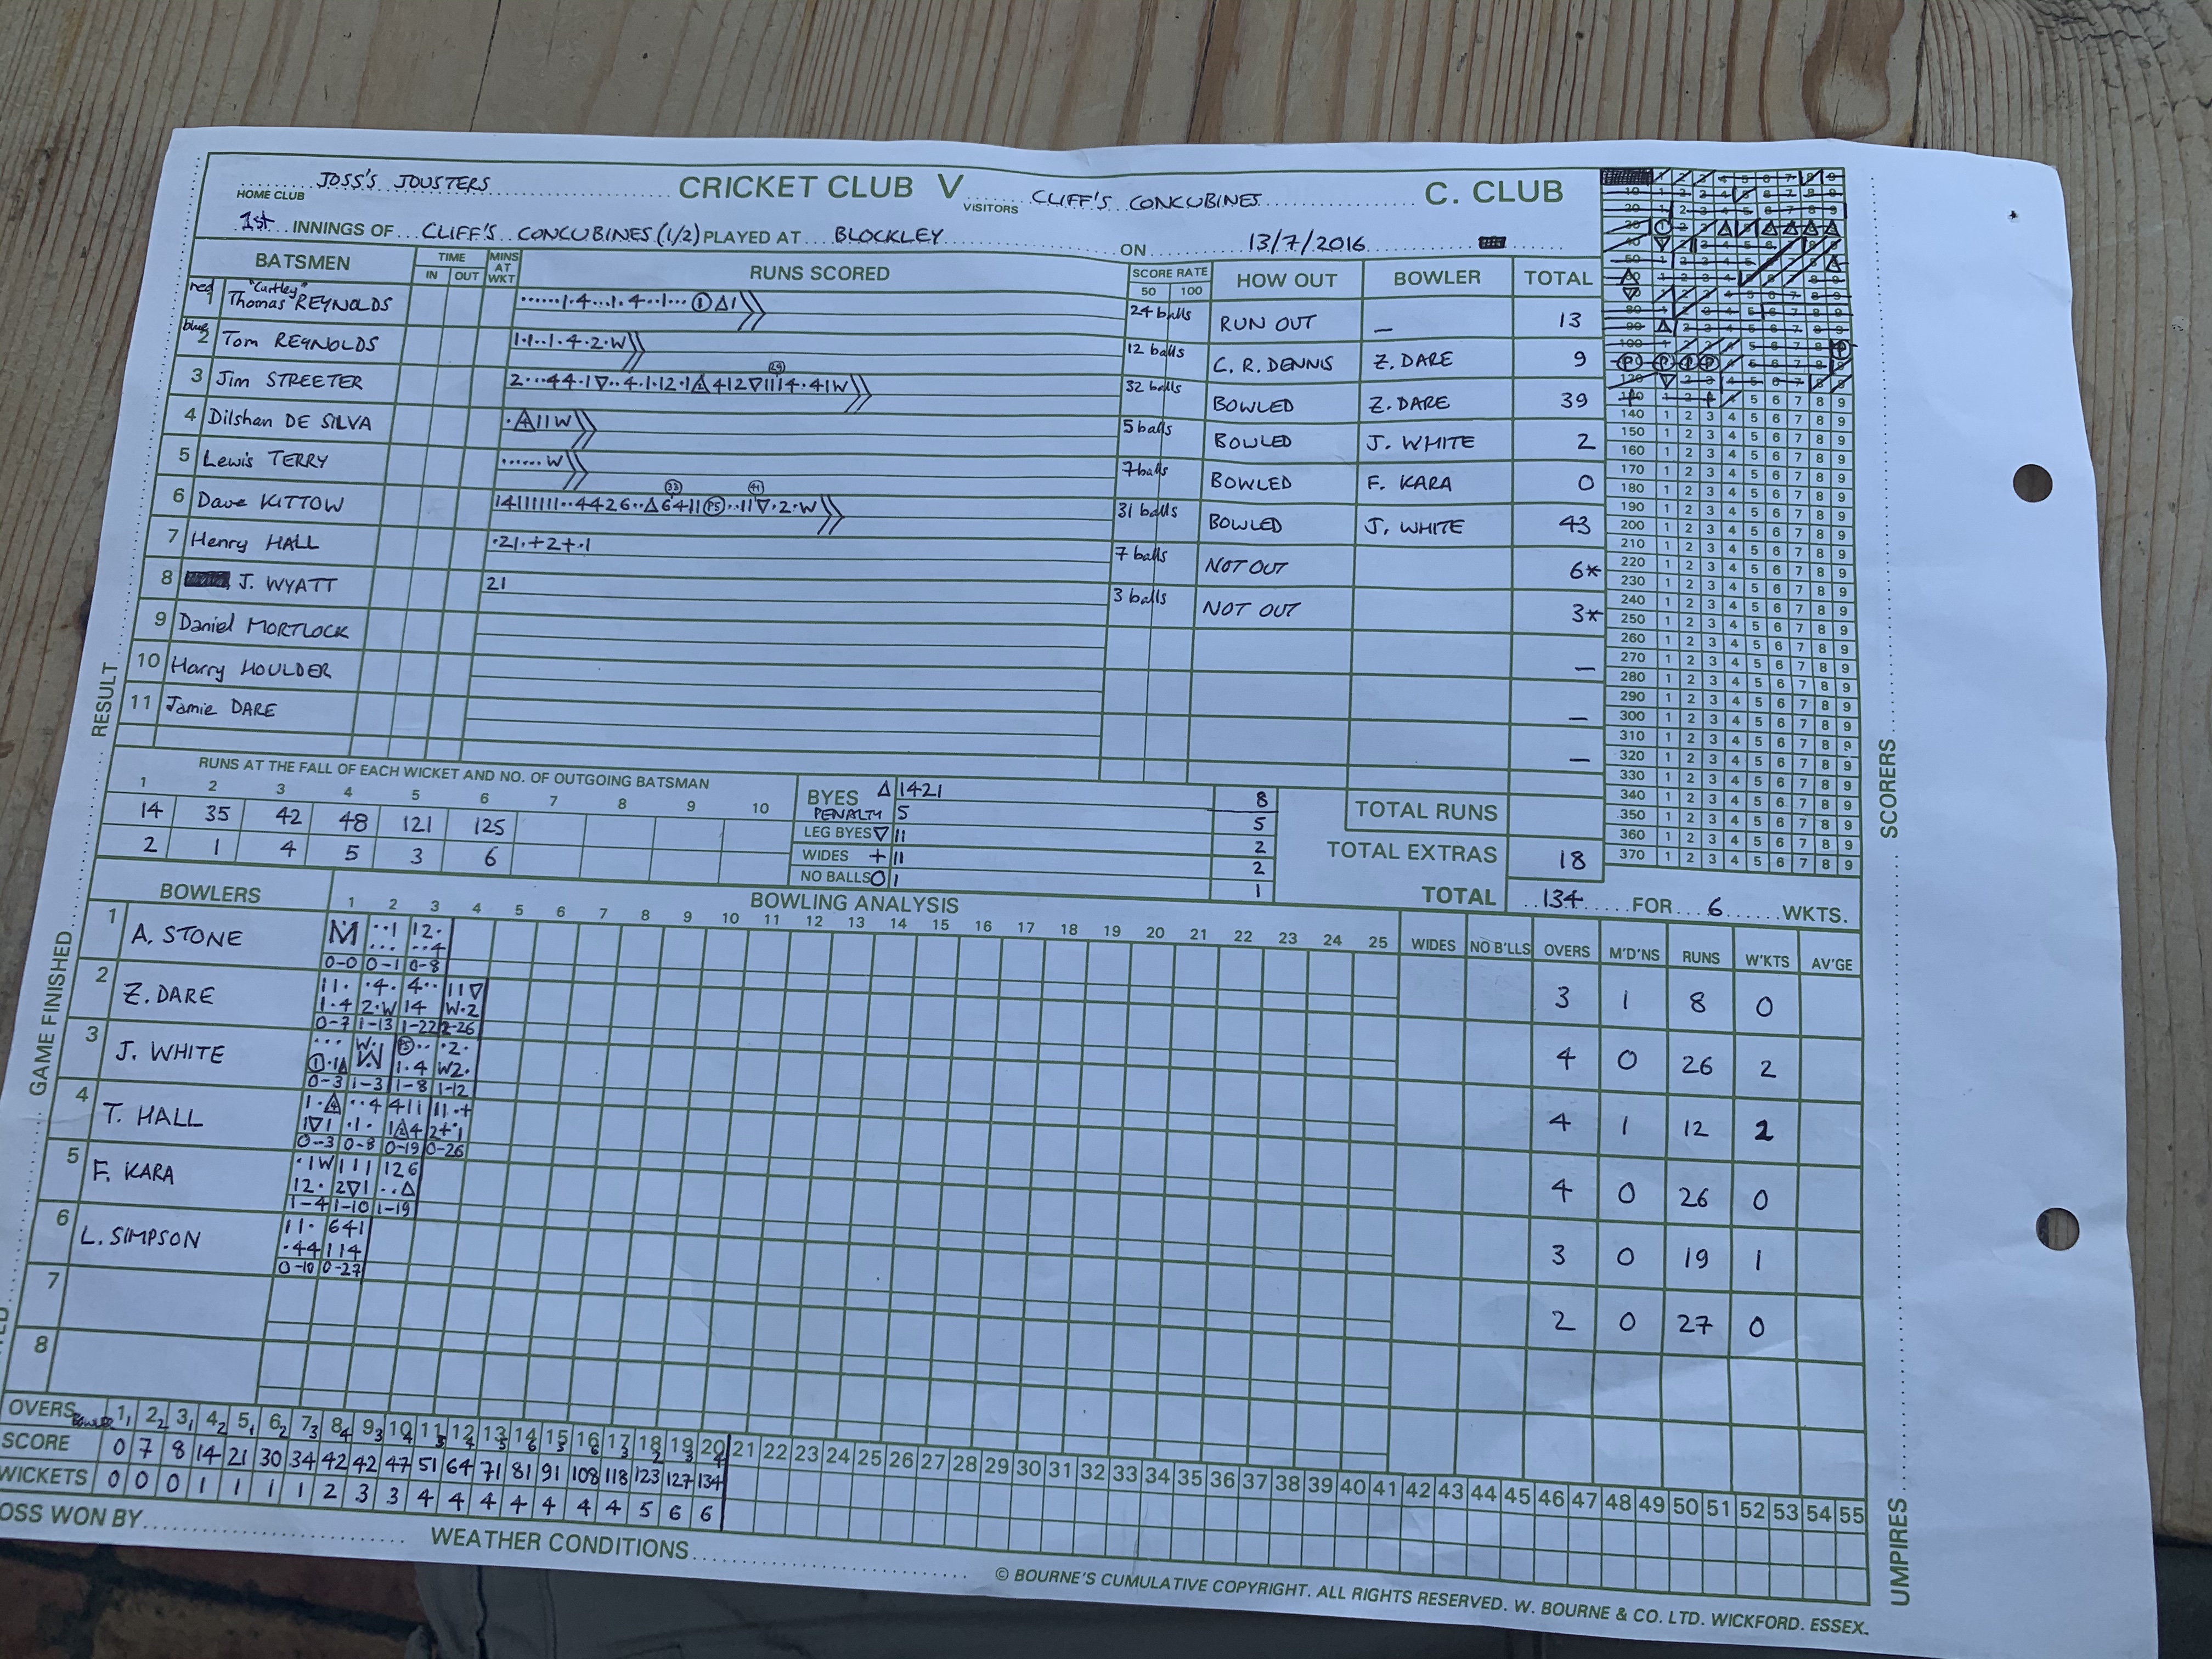 JOSS'S JOUSTERS CRICKET CLUB V CLIFF'S CONCUBINES C. CLUB
HOME CLUB VISITORS
1st INNINGS OF CLIFF'S CONCUBINES (1/2) PLAYED AT BLOCKLEY ON 13/7/2016
BATSMEN TIME IN OUT MINS AT WKT RUNS SCORED SCORE RATE 50 100 HOW OUT BOWLER TOTAL
red 1 "Curtley" Thomas REYNOLDS ......1.4...1.4..1...①△1 24 balls RUN OUT — 13
blue 2 Tom REYNOLDS 1.1..1.4.2.W 12 balls C. R. DENNIS Z. DARE 9
3 Jim STREETER 2...44.1▽..4.1.12.1△412▽1114.41W 32 balls BOWLED Z. DARE 39
4 Dilshan DE SILVA .△11W 5 balls BOWLED J. WHITE 2
5 Lewis TERRY ......W 7 balls BOWLED F. KARA 0
6 Dave KITTOW 14111111..4426..△6411(P5)..11▽.2.W 31 balls BOWLED J. WHITE 43
7 Henry HALL .21.+2+.1 7 balls NOT OUT 6*
8 J. WYATT 21 3 balls NOT OUT 3*
9 Daniel MORTLOCK
10 Harry HOULDER —
11 Jamie DARE —
—
RESULT
RUNS AT THE FALL OF EACH WICKET AND NO. OF OUTGOING BATSMAN
1 2 3 4 5 6 7 8 9 10
14 35 42 48 121 125
2 1 4 5 3 6
BYES △ 1421 8
PENALTY 5 5
LEG BYES ▽ 11 2
WIDES + 11 2
NO BALLS O 1 1
TOTAL RUNS
TOTAL EXTRAS 18
TOTAL 134 FOR 6 WKTS.
SCORERS
BOWLERS BOWLING ANALYSIS
1 2 3 4 5 6 7 8 9 10 11 12 13 14 15 16 17 18 19 20 21 22 23 24 25 WIDES NO B'LLS OVERS M'D'NS RUNS W'KTS AV'GE
1 A. STONE M ..1 12.
... ..4
0-0 0-1 0-8
3 1 8 0
2 Z. DARE 11. .4. 4.. 11▽
1.4 2.W 14 W.2
0-7 1-13 1-22 2-26
4 0 26 2
3 J. WHITE ... W.. (P5).. .2.
①.1△ 1.4 W2.
0-3 1-3 1-8 1-12
4 1 12 2
4 T. HALL 1.△ ..4 411 11.+
1▽1 .1. 1△4 2+.1
0-3 0-8 0-19 0-26
4 0 26 0
5 F. KARA .1W 111 126
12. 2▽1 ..△
1-4 1-10 1-19
3 0 19 1
6 L. SIMPSON 11. 641
.44 114
0-10 0-27
2 0 27 0
7
8
GAME FINISHED
OVERS Bowler 1 2 3 4 5 6 7 8 9 10 11 12 13 14 15 16 17 18 19 20 21 22 23 24 25 26 27 28 29 30 31 32 33 34 35 36 37 38 39 40 41 42 43 44 45 46 47 48 49 50 51 52 53 54 55
SCORE 0 7 8 14 21 30 34 42 42 47 51 64 71 81 91 108 118 123 127 134
WICKETS 0 0 0 1 1 1 1 2 3 3 4 4 4 4 4 4 4 5 6 6
OSS WON BY
WEATHER CONDITIONS
UMPIRES
© BOURNE'S CUMULATIVE COPYRIGHT. ALL RIGHTS RESERVED. W. BOURNE & CO. LTD. WICKFORD. ESSEX.